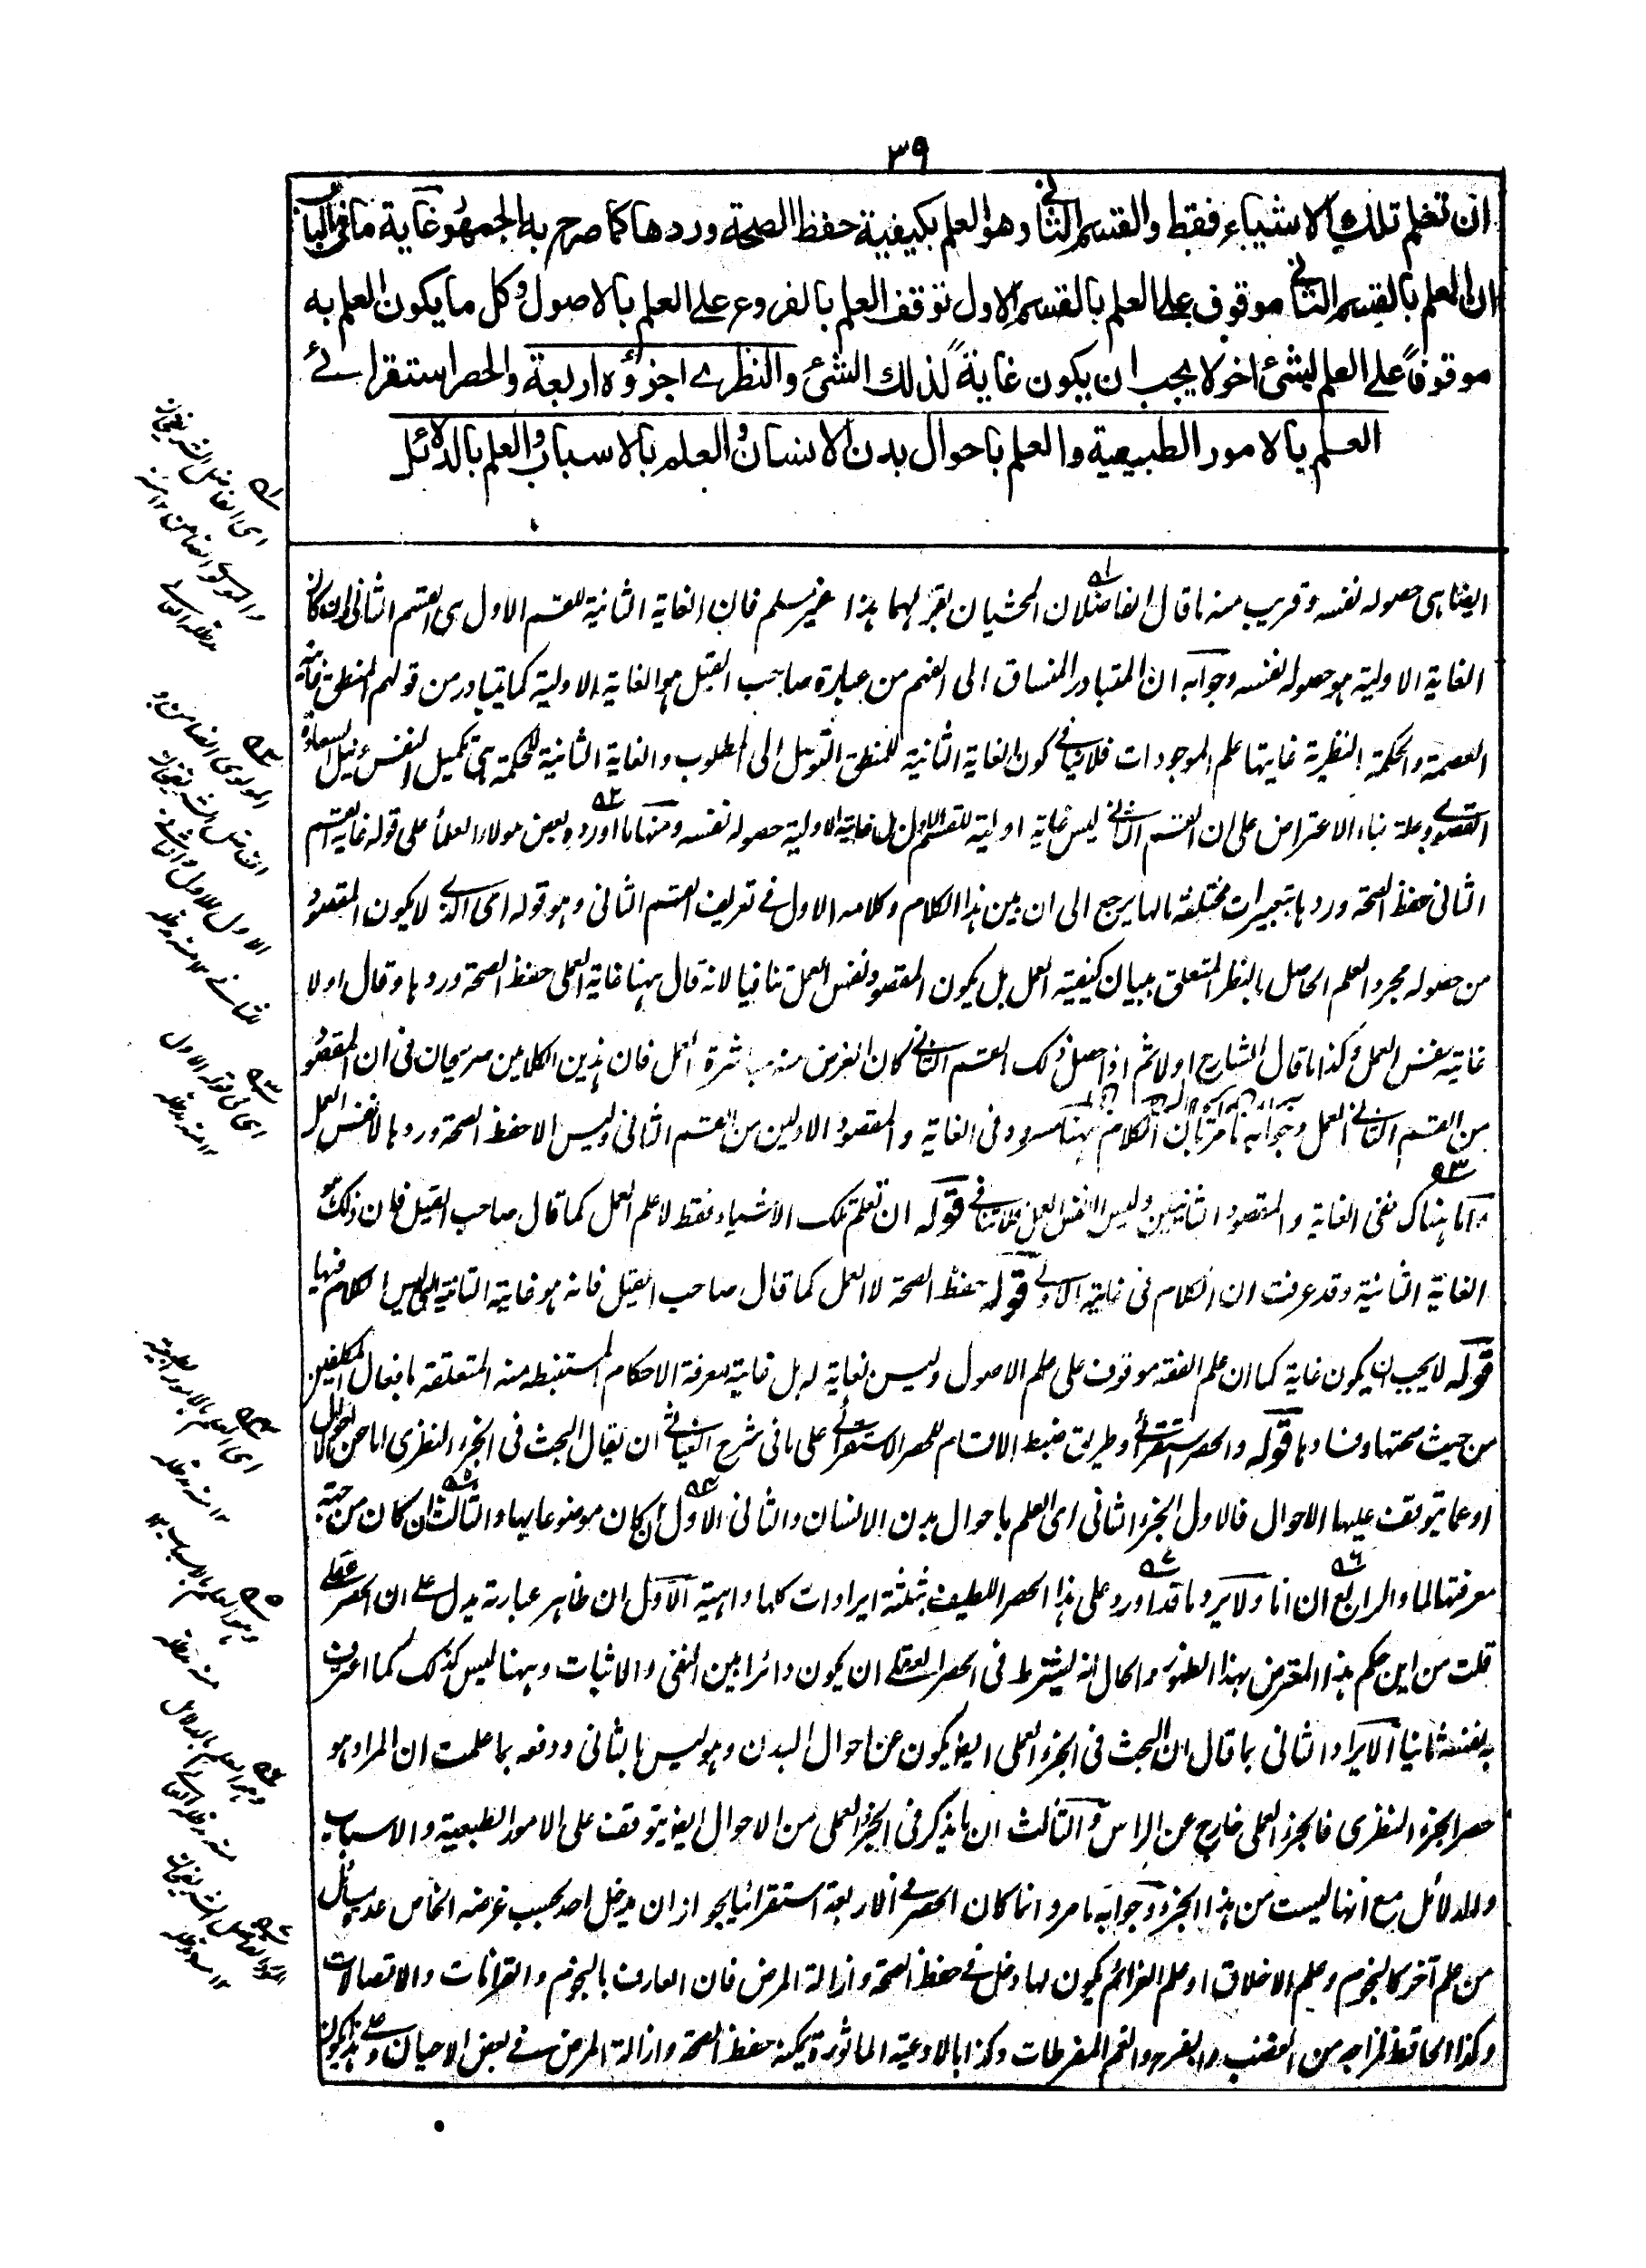 ٣٩
ان تعلم تلك الاشياء فقط والقسم الثانى وهو العلم بكيفية حفظ الصحة وردها كما صرح به الجمهور غاية ما فى الباب
ان العلم بالقسم الثانى موقوف على العلم بالقسم الاول توقف العلم بالفروع على العلم بالاصول وكل ما يكون العلم به
موقوفاً على العلم بشئ اخر لا يجب ان يكون غايةً لذلك الشئ والنظرے اجزؤه اربعة والحصر استقرائے
العلم بالامور الطبيعية والعلم باحوال بدن الانسان والعلم بالاسباب والعلم بالدلائل
ايضا هى حصوله نفسه وقريب منه ما قال الفاضلان المحشيان بقولهما هذا غير مسلم فان الغاية الثانية للقسم الاول هى القسم الثانى وان كان
الغاية الاولية هو حصوله نفسه وجوابه ان المتبادر المنساق الى الفهم من عبارة صاحب القيل هو الغاية الاولية كما يتبادر من قولهم المنطق غايته
العصمة والحكمة النظرية غايتها علم الموجودات فلا ينافى كون الغاية الثانية للمنطق التوسل الى المطلوب والغاية الثانية للحكمة هى تكميل النفس ونيل السعادة
القصوى وعلة بناء الاعتراض على ان القسم الثانى ليس غاية اولية للقسم الاول بل غايته الاولية حصوله نفسه ومنها ما اورده بعض مولاد العلماء على قوله غاية القسم
الثانى حفظ الصحة وردها بتعبيرات مختلفة مالها يرجع الى ان بين هذا الكلام وكلامه الاول فى تعريف القسم الثانى وهو قوله اى الذى لا يكون المقصود
من حصوله مجرد العلم الحاصل بالنظر المتعلق ببيان كيفية العمل بل يكون المقصود نفس العمل تنافيا لانه قال ههنا غاية العملى حفظ الصحة وردها وقال اولا
غايته نفس العمل وكذا ما قال الشارح اولا ثم اذا حصل ذلك القسم الثانى كان الغرض منه مباشرة العمل فان هذين الكلامين صريحان فى ان المقصود
من القسم الثانى العمل وجوابه ما مر بان الكلام ههنا مسرود فى الغاية والمقصود الاولين من القسم الثانى وليس الا حفظ الصحة وردها لا نفس العمل
واما هناك ففى الغاية والمقصود الثانيين وليس الا نفس العمل فلا تنافى قوله ان تعلم تلك الاشياء فقط لا علم العمل كما قال صاحب القيل فان ذلك هو
الغاية الثانية وقد عرفت ان الكلام فى غايته الاولى قوله حفظ الصحة لا العمل كما قال صاحب القيل فانه هو غايته الثانية التى ليس الكلام فيها
قوله لا يجب ان يكون غاية كما ان علم الفقه موقوف على علم الاصول وليس بغاية له بل غايته معرفة الاحكام المستنبطه منه المتعلقة بافعال المكلفين
من حيث صحتها وفسادها قوله والحصر استقرائى وطريق ضبط الاقسام للحصر الاستقرائى على ما فى شرح الغياثى ان يقال البحث فى الجزء النظرى اما عن الاحوال
او عما يتوقف عليها الاحوال فالاول الجزء الثانى اى العلم باحوال بدن الانسان والثانى الاول ان كان موضوعا لها والثالث ان كان من جهة
معرفتها لما والرابع ان انا ولا يرد ما قد اورد على هذا الحصر اللطيف بثلثة ايرادات كلها واهية الاول ان ظاهر عبارته يدل على ان الحصر عقلى
قلت من اين حكم هذا المعترض بهذا الظهور والحال انه يشترط فى الحصر العقلى ان يكون دائرا بين النفى والاثبات وههنا ليس كذلك كما اعترف
به نفسه ثانيا الايراد الثانى بما قال ان البحث فى الجزء العملى ايضا يكون عن احوال البدن وهو ليس بالثانى ودفعه بما علمت ان المراد هو
حصر الجزء النظرى فالجزء العملى خارج عن الراس والثالث ان ما يذكر فى الجزء العملى من الاحوال ايضا يتوقف على الامور الطبعية والاسباب
والدلائل مع انها ليست من هذا الجزء وجوابه ما مر وانما كان الحصر فى الاربعة استقرائيا لجواز ان يدخل احد بحسب غرضه الخاص عدة مسائل
من علم آخر كالنجوم وعلم الاخلاق او علم العزائم يكون لها دخل فى حفظ الصحة وازالة المرض فان العارف بالنجوم والقرانات والاتصالات
وكذا الحافظ لمزاجه من الغضب والفرح والغم المفرطات وكذا بالادعية الماثورة يمكنه حفظ الصحة وازالة المرض فى بعض الاحيان وعلى هذا يكون